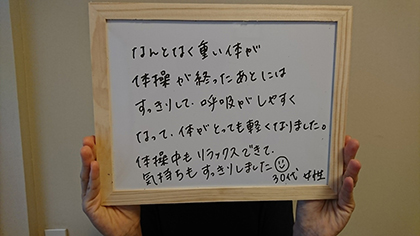 なんとなく重い体が
体操が終ったあとには
すっきりして、呼吸がしやすく
なって、体がとっても軽くなりました。
体操中もリラックスできて、
気持ちもすっきりしました☺
30代 女性